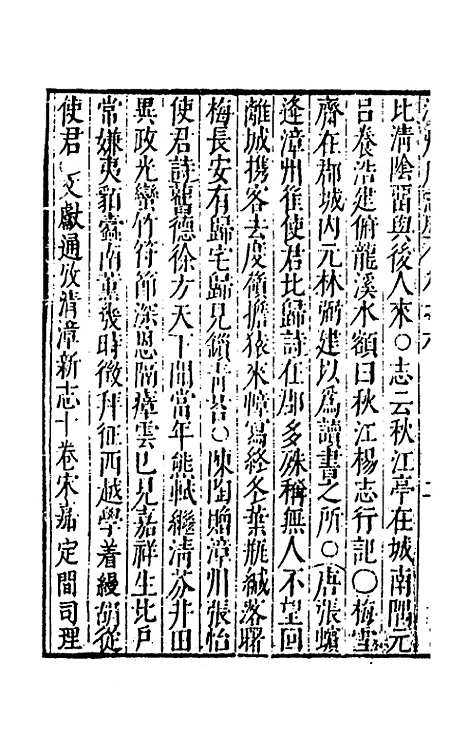 比清陰留與後人來○志云秋江亭在城南隅元
呂養浩建俯龍溪水額曰秋江楊志行記○梅雪
齋在郡城内元林弼建以爲讀書之所○唐張蠙
逢漳州崔使君北歸詩在郡多殊稱無人不望回
離城携客去度嶺擔猿來障寫經冬葉瓶緘落曙
梅長安有歸宅歸見鎖青苔○陳陶贈漳州張怡
使君詩龍德徐方天下閒當年能賦繼清芬井田
異政光蠻竹符節深恩隔瘴雲已見嘉祥生北戸
常嫌夷貊蠹南薰幾時徵拜征西越學着縵胡從
使君 文獻通攷清漳新志十卷宋嘉定間司理